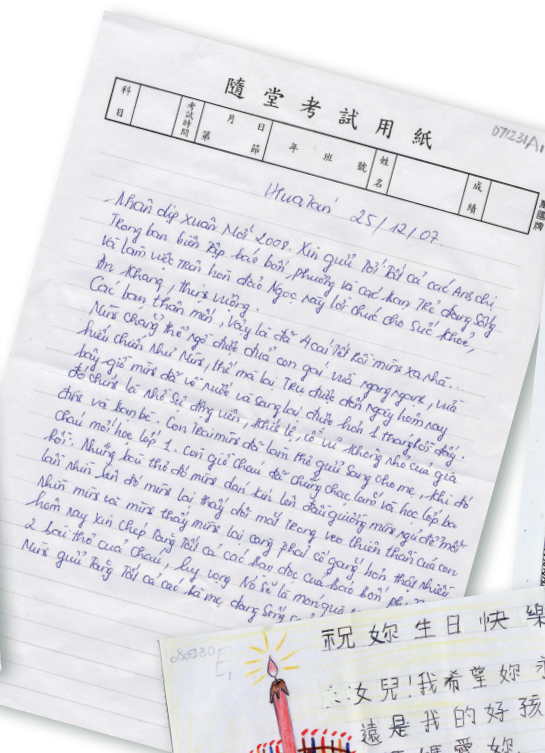 隨堂考試用紙
071231A1
科目 考試時間 月 日 第 節 年 班 號 姓名 成績
萬國牌
HuaTan 25/12/07.
Nhân dịp xuân Mới 2008. Xin gửi Tới Tất cả các Anh chị
Trong ban biên Tập báo bốn phương và các bạn Trẻ đang sống
và làm việc Trên hòn đảo Ngọc này lời chúc cho sức khỏe,
An Khang, thịnh vượng.
Các bạn thân mến, vậy là đã 4 cái Tết rồi mình xa nhà...
Mình chẳng thể ngờ được đứa con gái vừa ngang ngang, vừa
hiếu chiến như Mình, thế mà lại Trụ được đến ngày hôm nay
bây giờ mình đã về nước và sang lại được hơn 1 tháng rồi đấy.
đó chính là Nhờ Sự động viên, khích lệ, cổ vũ không nhỏ của gia
đình và bạn bè. Con Trai mình đã làm thơ gửi sang cho mẹ, khi đó
cháu mới học lớp 1. Còn giờ cháu đã chững chạc lắm và học lớp ba
rồi. Những bài thơ đó mình dán kín lên đầu giường mình ngủ để mỗi
lần nhìn lên đó mình lại thấy đôi mắt Trong veo thiên thần của con
nhìn mình và mình thấy mình lại càng phải cố gắng hơn thật nhiều
hôm nay xin chép Tặng Tất cả các bạn đọc của báo bốn
2 bài thơ của cháu, hy vọng Nó sẽ là món quà
Mình gửi Tặng Tất cả các bà mẹ đang sống
080930
E,
祝妳生日快樂
女兒!我希望妳永
遠是我的好孩
媽愛妳